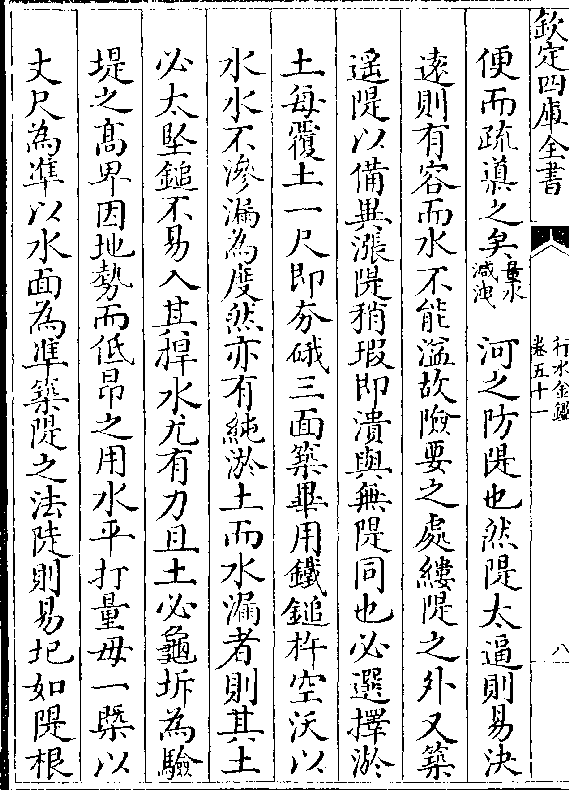 欽定四庫全書
行水金鑑
卷五十一
八
便而疏導之矣量水減洩　河之防隄也然隄太逼則易決
遠則有容而水不能溢故險要之處縷隄之外又築
遥隄以備異漲隄稍瑕即潰與無隄同也必選擇淤
土每覆土一尺即夯硪三面築畢用鐵鎚杵空沃以
水水不滲漏為度然亦有純淤土而水漏者則其土
必太堅鎚不易入其捍水尤有力且土必龜坼為驗
堤之髙卑因地勢而低昂之用水平打量毋一槩以
丈尺為準以水面為準築隄之法陡則易圮如隄根